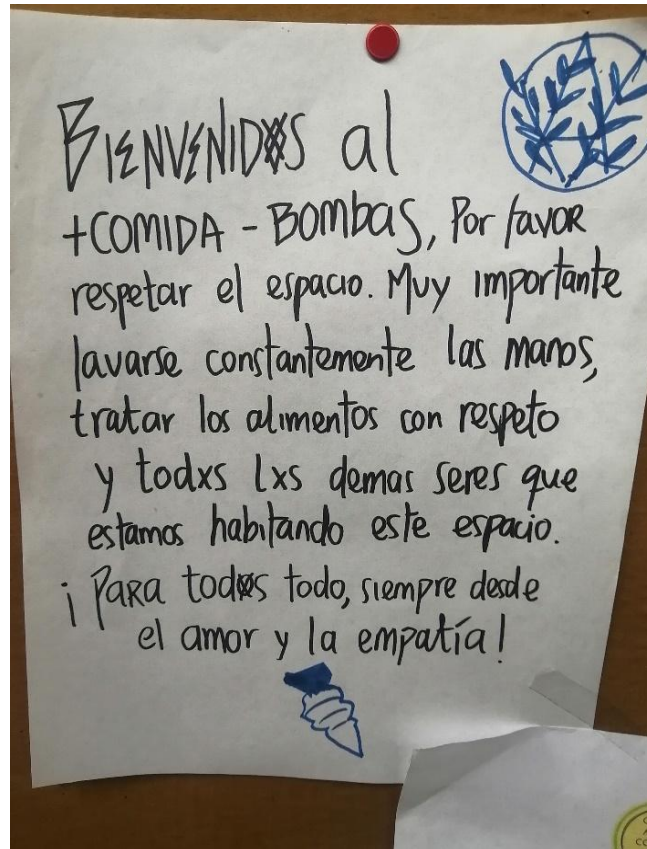 BIENVENIDXS al
+COMIDA - BOMBAS, Por favor
respetar el espacio. Muy importante
lavarse constantemente las manos,
tratar los alimentos con respeto
y todxs lxs demas seres que
estamos habitando este espacio.
¡Para todxs todo, siempre desde
el amor y la empatía!